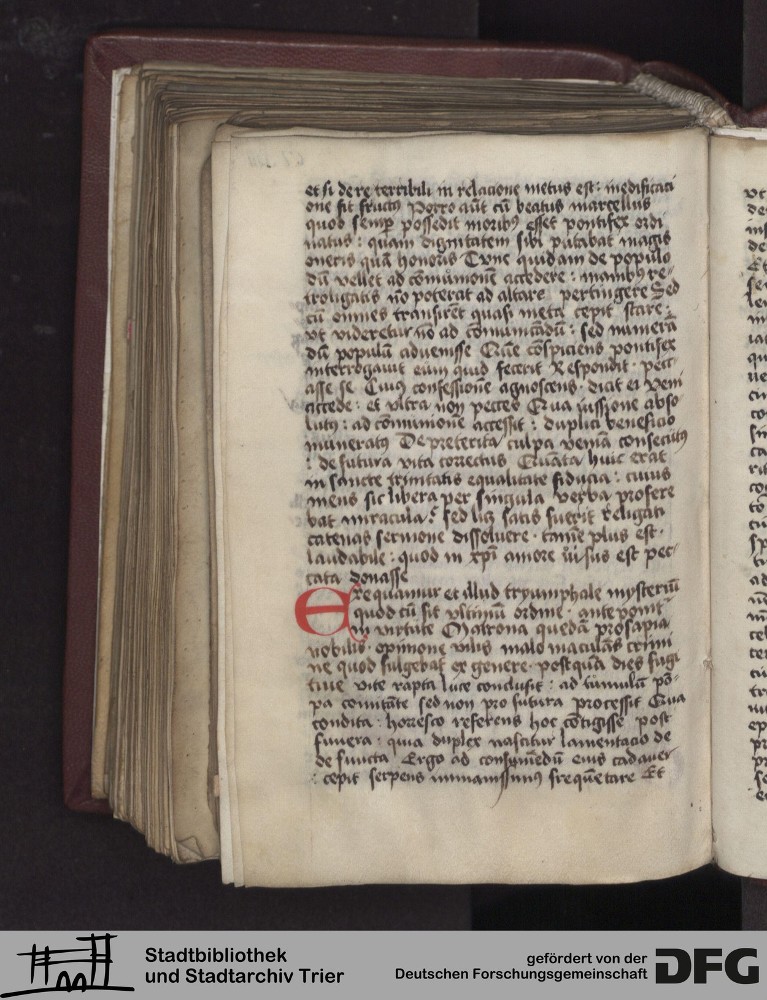 et si de re terribili in relacione metus est : inedificati
one fit fructꝰ Porro aūt cū beatus marcellus
quod semꝑ possedit moribꝰ esset pontifex ordi
natus : quam dignitatem sibi putabat magis
oneris quā honoris Tunc quidam de populo
dū vellet ad cōmunionē accedere : manibꝰ re
troligatis nō poterat ad altare pertingere Sed
cū omnes transirēt quasi meta cepit stare :
vt videretur nō ad cōmunicādū : sed numerā
dū populū aduenisse Quē cōspiciens pontifex
interrogauit eum quid fecerit Respondit · pecc
asse se Cuiꝰ confessionē agnoscens · dicit ei veni
accede : et vltra non pecces Qua iussione abso
lutꝰ : ad cōmunione accessit : duplici beneficio
muneratꝰ De preterita culpa veniā consecutꝰ
: de futura vita correctus Quāta huic erat
in sancte trinitatis equalitate fiducia : cuius
mens sic libera per singula verba profere
bat miracula : sed licꝫ satis fuerit religati
catenas sermone dissoluere · tamē plus est ·
laudabile : quod in xp̄i amore est pec
cata donasse
Exequamur et illud tryumphale mysteriū
quod cū sit vltimū ordine · anteponit̄
in virtute Matrona quedā prosapia
nobilis · opinione vilis malo maculās crimi
ne quod fulgebat ex genere · postquā dies fugi
tiue vite rapta luce conclusit : ad tumulū pō
pa comitāte sed non profutura processit Qua
condita : horresco referens hoc cōtigisse post
funera : quia duplex nascitur lamentacio de
de functa Ergo ad consumēdū eius cadauer
: cepit serpens immanissimꝰ frequētare Et
Stadtbibliothek
und Stadtarchiv Trier
gefördert von der
Deutschen Forschungsgemeinschaft
DFG